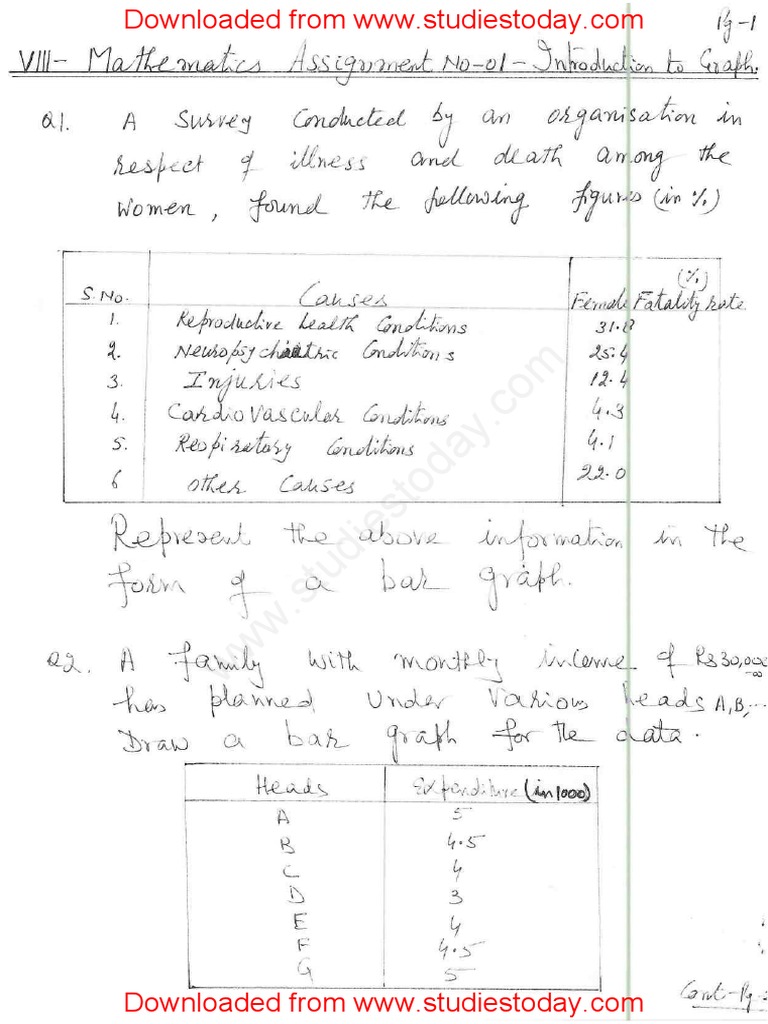 Downloaded from www.studiestoday.com
Pg-1
VIII- Mathematics Assignment No-01- Introduction to Graph.
Q1. A Survey Conducted by an organisation in
respect of illness and death among the
women, found the following figures (in %)
S.No. Causes Female Fatality rate (%)
1. Reproductive health Conditions 31.8
2. Neuropsychiatric Conditions 25.4
3. Injuries 12.4
4. Cardiovascular Conditions 4.3
5. Respiratory Conditions 4.1
6 Other Causes 22.0
Represent the above information in the
form of a bar graph.
Q2. A family with monthly income of Rs 30,000
has planned under various heads A,B,...
Draw a bar graph for the data.
Heads Expenditure (in 1000)
A 5
B 4.5
C 4
D 3
E 4
F 4.5
G 5
www.studiestoday.com
Downloaded from www.studiestoday.com